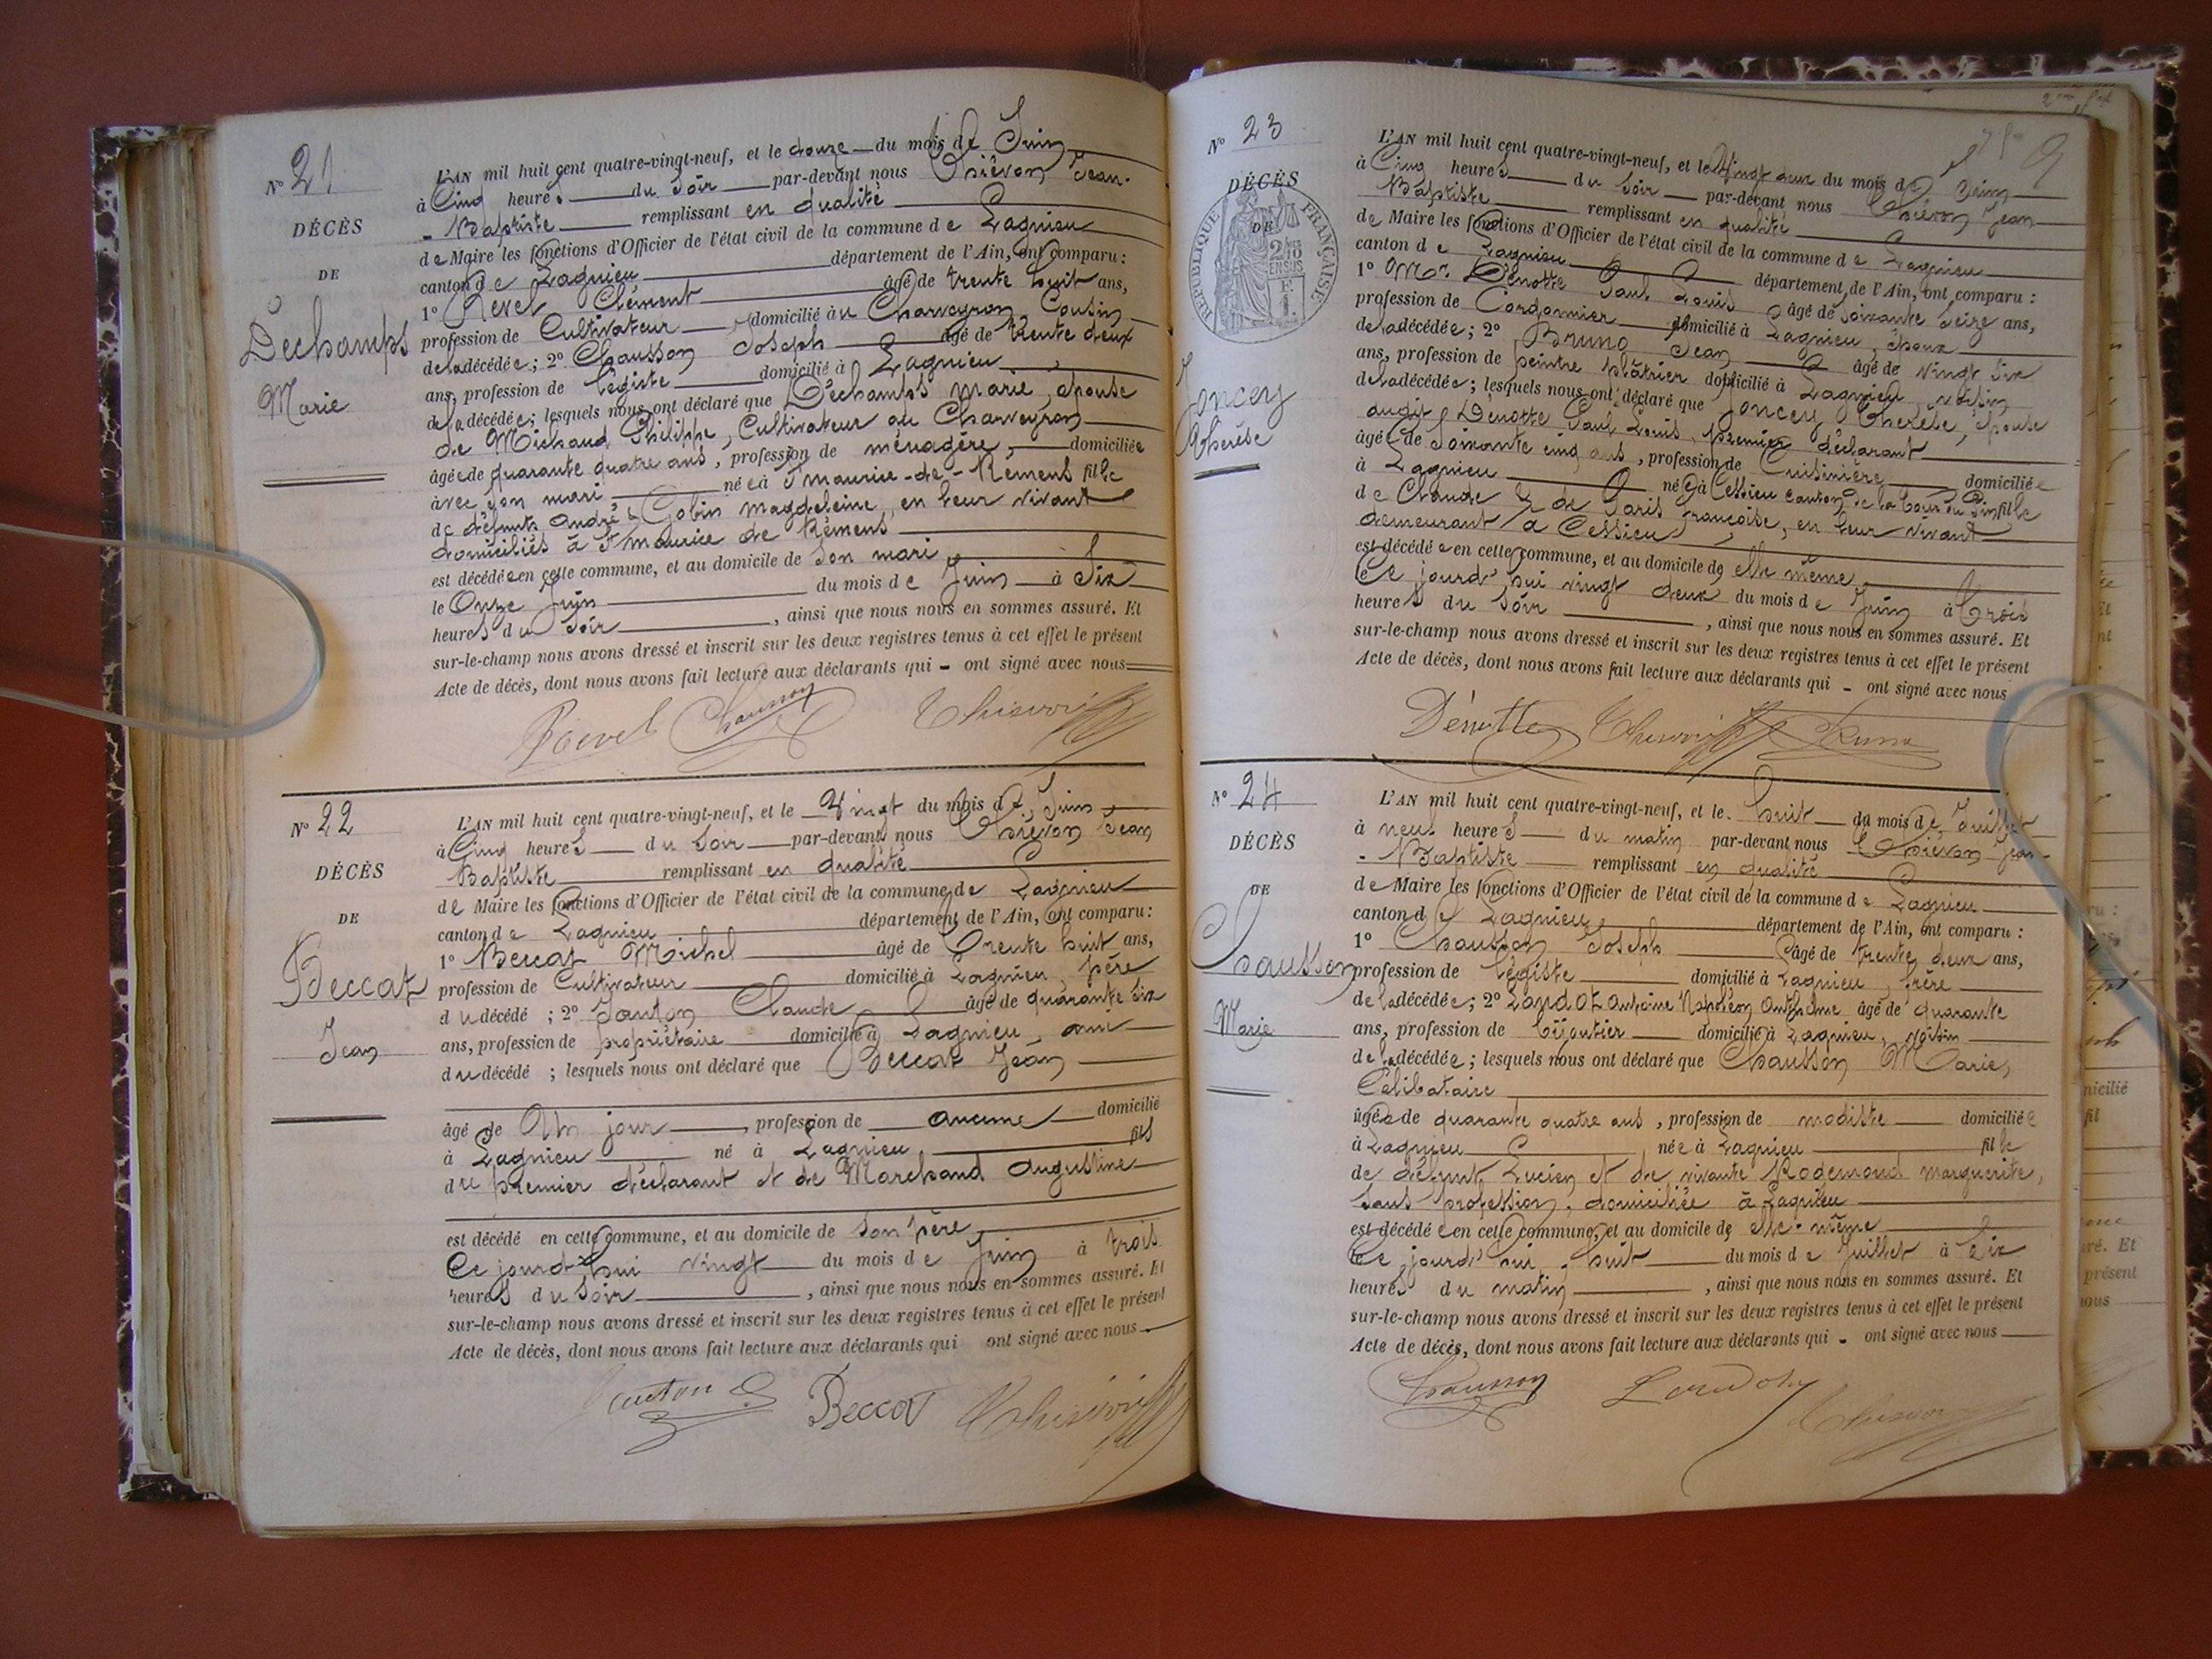 N° 21
DÉCÈS
DE
Déchamps
Marie
L'AN mil huit cent quatre-vingt-neuf, et le douze du mois de Juin
à Cinq heures du Soir par-devant nous Thiévon Jean-
-Baptiste remplissant en qualité
de Maire les fonctions d'Officier de l'état civil de la commune de Lagnieu
canton de Lagnieu département de l'Ain, ont comparu :
1° Revel Clément âgé de trente huit ans,
profession de Cultivateur domicilié au Charveyron, Cousin
de la décédée; 2° Chausson Joseph âgé de trente deux
ans, profession de légiste domicilié à Lagnieu
de la décédée; lesquels nous ont déclaré que Déchamps Marie, épouse
de Michaud Philippe, Cultivateur au Charveyron
âgée de quarante quatre ans, profession de ménagère, domiciliée
avec son mari née à St maurice-de-Remens fille
de défunts André & Gobin Magdeleine, en leur vivant
domiciliés à St maurice de Rémens
est décédée en cette commune, et au domicile de Son mari
le Onze Juin du mois de Juin à Six
heures du Soir, ainsi que nous nous en sommes assuré. Et
sur-le-champ nous avons dressé et inscrit sur les deux registres tenus à cet effet le présent
Acte de décès, dont nous avons fait lecture aux déclarants qui - ont signé avec nous
Revel Chausson Thiévon
N° 22
DÉCÈS
DE
Beccat
Jean
L'AN mil huit cent quatre-vingt-neuf, et le Vingt du mois de Juin
à Cinq heures du Soir par-devant nous Thiévon Jean
Baptiste remplissant en qualité
de Maire les fonctions d'Officier de l'état civil de la commune de Lagnieu
canton de Lagnieu département de l'Ain, ont comparu :
1° Beccat Michel âgé de Trente huit ans,
profession de Cultivateur domicilié à Lagnieu, père
du décédé ; 2° Janton Claude âgé de quarante six
ans, profession de propriétaire domicilié à Lagnieu, ami
du décédé ; lesquels nous ont déclaré que Beccat Jean
âgé de Un jour, profession de aucune domicilié
à Lagnieu né à Lagnieu fils
du premier déclarant et de Marchand Augustine
est décédé en cette commune, et au domicile de Son père
Ce jourd'hui vingt du mois de Juin à trois
heures du Soir, ainsi que nous nous en sommes assuré. Et
sur-le-champ nous avons dressé et inscrit sur les deux registres tenus à cet effet le présent
Acte de décès, dont nous avons fait lecture aux déclarants qui ont signé avec nous
Janton Beccat Thiévon
N° 23
DÉCÈS
DE
RÉPUBLIQUE FRANÇAISE
Joncery
Thérèse
9
L'AN mil huit cent quatre-vingt-neuf, et le Vingt deux du mois de Juin
à Cinq heures du Soir par-devant nous Thiévon Jean
Baptiste remplissant en qualité
de Maire les fonctions d'Officier de l'état civil de la commune de Lagnieu
canton de Lagnieu département de l'Ain, ont comparu :
1° Mr. Dénotte Paul Louis âgé de Soixante Seize ans,
profession de Cordonnier domicilié à Lagnieu, époux
de la décédée; 2° Bruno Jean âgé de vingt six
ans, profession de peintre plâtrier domicilié à Lagnieu, voisin
de la décédée; lesquels nous ont déclaré que Joncery Thérèse, épouse
dudit Dénotte Paul Louis, premier déclarant
âgée de Soixante cinq ans, profession de Cuisinière domiciliée
à Lagnieu née à Cessieu canton de la Tour du Pin fille
de Claude & de Paris françoise, en leur vivant
demeurant à Cessieu
est décédée en cette commune, et au domicile de elle même
le Ce jourd'hui vingt deux du mois de Juin à Trois
heures du Soir, ainsi que nous nous en sommes assuré. Et
sur-le-champ nous avons dressé et inscrit sur les deux registres tenus à cet effet le présent
Acte de décès, dont nous avons fait lecture aux déclarants qui - ont signé avec nous
Dénotte Thiévon Bruno
N° 24
DÉCÈS
DE
Chausson
Marie
L'AN mil huit cent quatre-vingt-neuf, et le huit du mois de Juillet
à neuf heures du matin par-devant nous Thiévon Jean-
-Baptiste remplissant en qualité
de Maire les fonctions d'Officier de l'état civil de la commune de Lagnieu
canton de Lagnieu département de l'Ain, ont comparu :
1° Chausson Joseph âgé de trente deux ans,
profession de légiste domicilié à Lagnieu, frère
de la décédée; 2° Landot Antoine Napoléon Anthelme âgé de quarante
ans, profession de bijoutier domicilié à Lagnieu, voisin
de la décédée; lesquels nous ont déclaré que Chausson Marie,
Célibataire
âgée de quarante quatre ans, profession de modiste domiciliée
à Lagnieu née à Lagnieu fille
de défunt Lucien et de vivante Rodemond Marguerite,
sans profession, domiciliée à Lagnieu
est décédée en cette commune, et au domicile de elle-même
le Ce jourd'hui huit du mois de Juillet à Six
heures du matin, ainsi que nous nous en sommes assuré. Et
sur-le-champ nous avons dressé et inscrit sur les deux registres tenus à cet effet le présent
Acte de décès, dont nous avons fait lecture aux déclarants qui - ont signé avec nous
Chausson Landot Thiévon